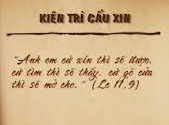 KIÊN TRÌ CẦU XIN
"Anh em cứ xin thì sẽ được,
cứ tìm thì sẽ thấy, cứ gõ cửa
thì sẽ mở cho." (Lc 11,9)